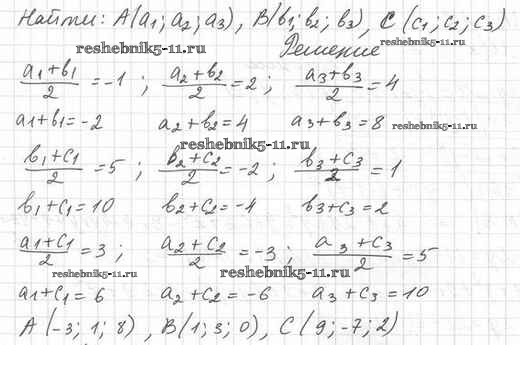 Найти: A(a1; a2; a3), B(b1; b2; b3), C(c1; c2; c3)
reshebnik5-11.ru
Решение
(a1+b1)/2 = -1 ; (a2+b2)/2 = 2 ; (a3+b3)/2 = 4
a1+b1=-2 a2+b2=4 a3+b3=8 reshebnik5-11.ru
reshebnik5-11.ru
(b1+c1)/2 = 5 ; (b2+c2)/2 = -2 ; (b3+c3)/2 = 1
b1+c1=10 b2+c2=-4 b3+c3=2
(a1+c1)/2 = 3 ; (a2+c2)/2 = -3 ; (a3+c3)/2 = 5
reshebnik5-11.ru reshebnik5-11.ru
a1+c1=6 a2+c2=-6 a3+c3=10
A(-3; 1; 8), B(1; 3; 0), C(9; -7; 2)